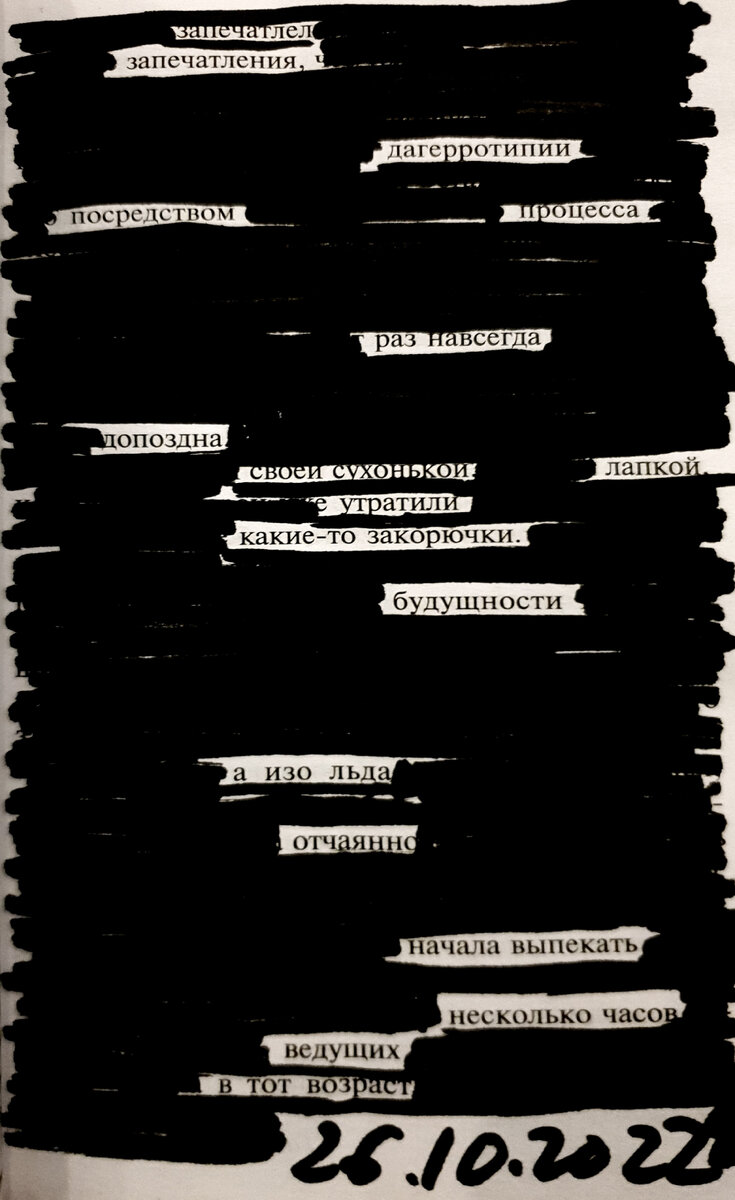 запечатлел
запечатления, ч
дагерротипии
посредством процесса
раз навсегда
допоздна
своей сухонькой лапкой
е утратили
какие-то закорючки.
будущности
а изо льда
отчаянно
начала выпекать
несколько часов
ведущих
в тот возраст
26.10.2022